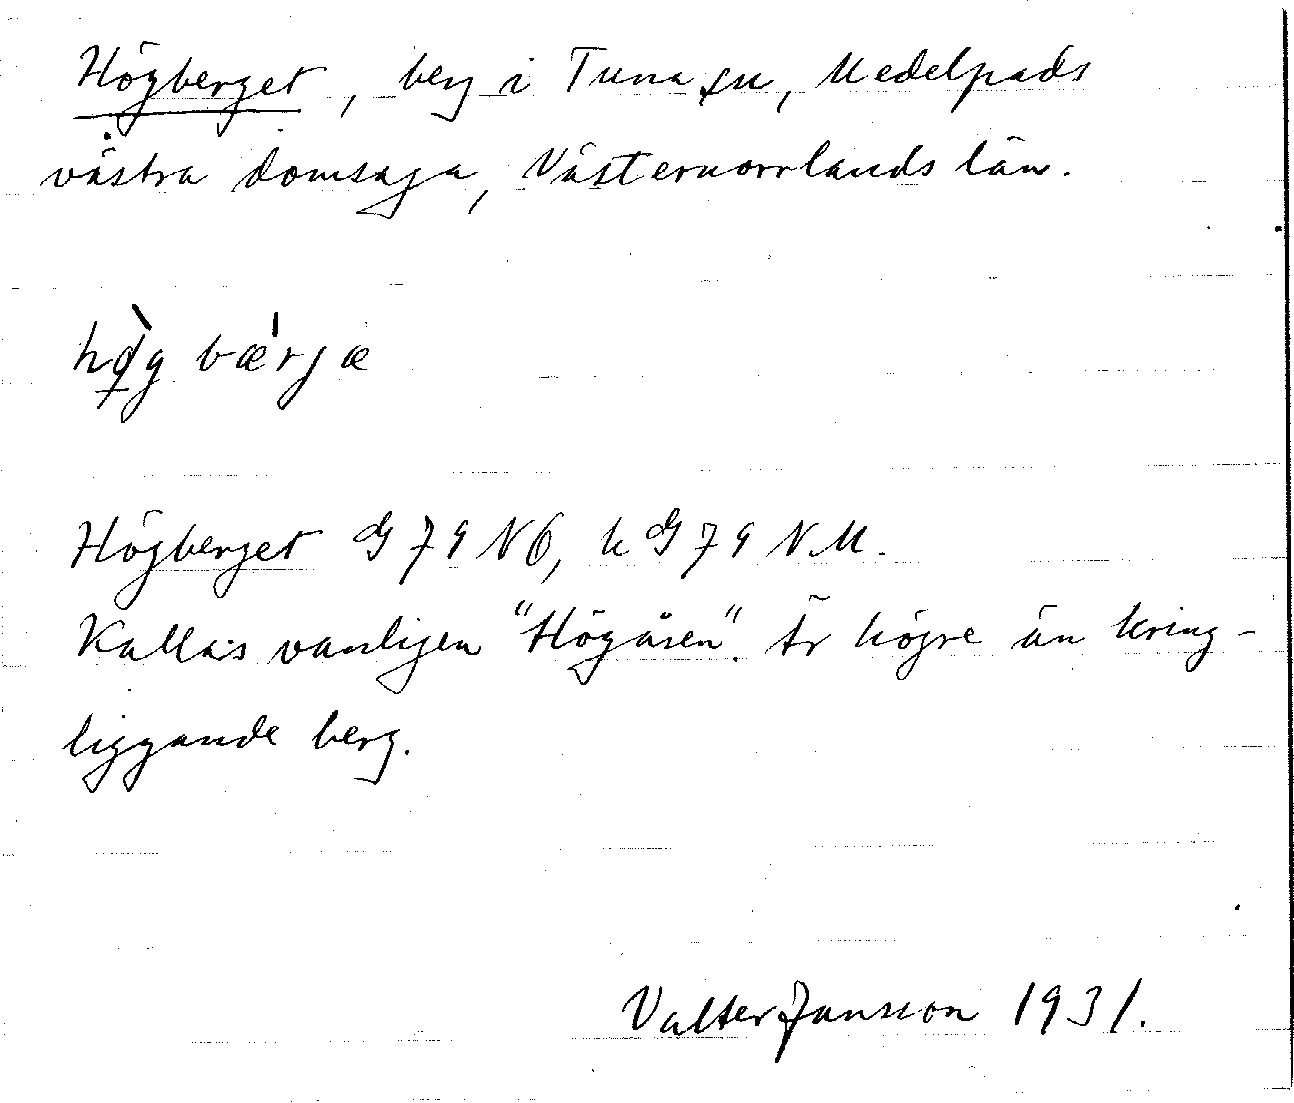 Högberget, berg i Tuna sn, Medelpads
västra domsaga, Västernorrlands län.
hø̀g bæ'rjæ
Högberget G 79 NÖ, k G 79 NM.
Kallas vanligen "Högåsen". Är högre än kring-
liggande berg.
Valter Jansson 1931.